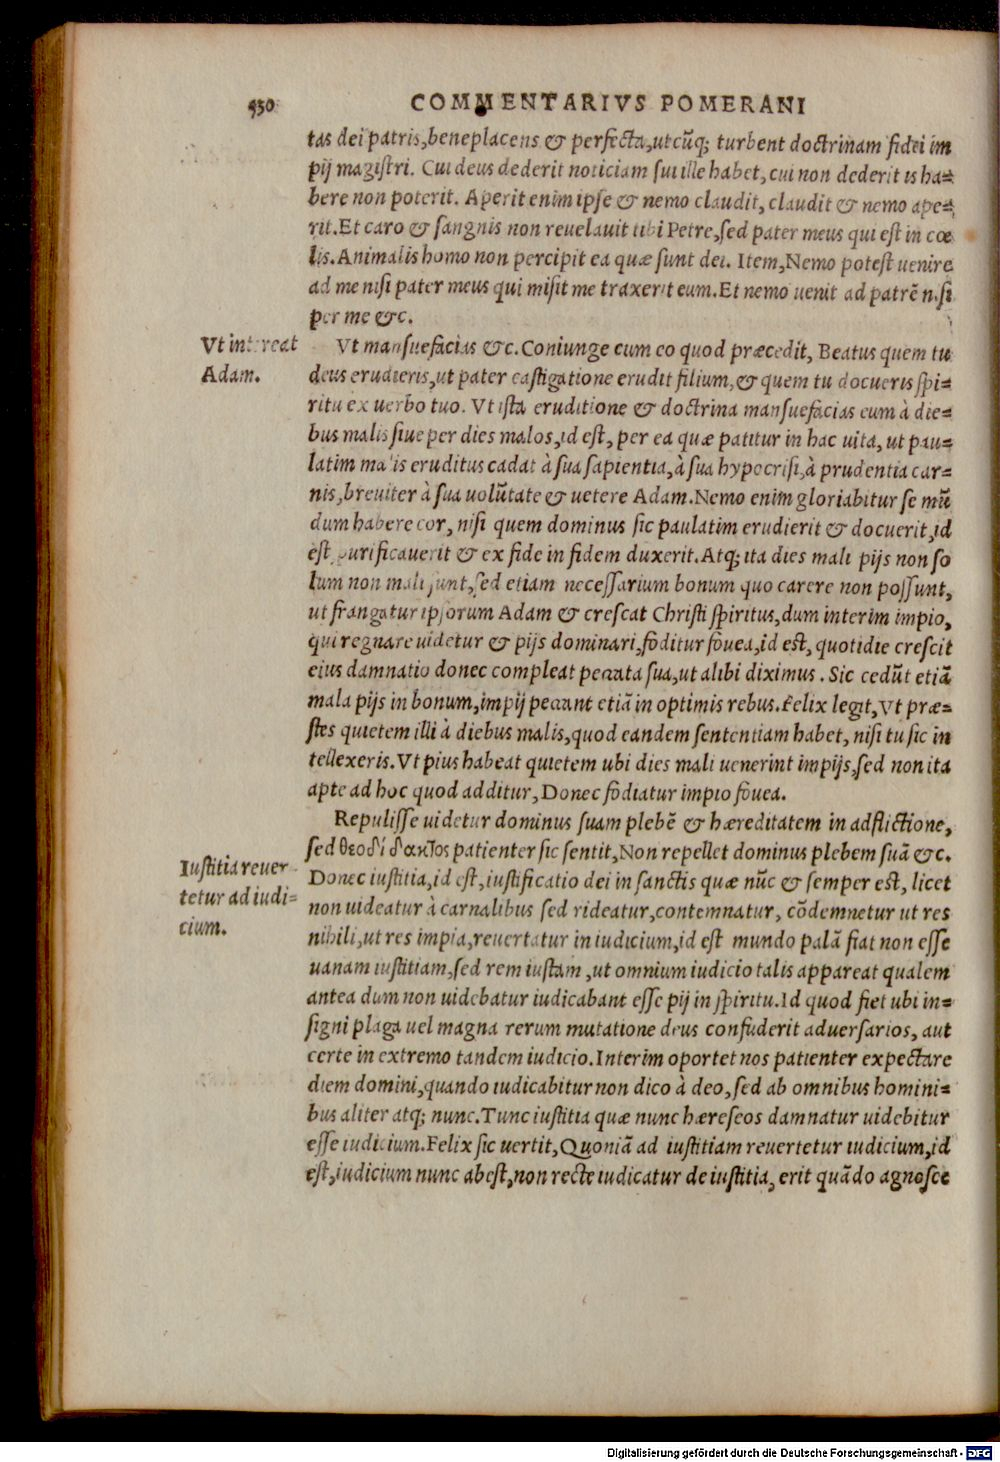 530 COMMENTARIVS POMERANI
tas dei patris, beneplacens & perfecta, utcũq; turbent doctrinam fidei im
pij magistri. Cui deus dederit noticiam sui ille habet, cui non dederit is ha=
bere non poterit. Aperit enim ipse & nemo claudit, claudit & nemo ape=
rit. Et caro & sangnis non reuelauit tibi Petre, sed pater meus qui est in cœ
lis. Animalis homo non percipit ea quæ sunt dei. Item, Nemo potest uenire
ad me nisi pater meus qui misit me traxerit eum. Et nemo uenit ad patrẽ nisi
per me &c.
Vt intereat
Adam.
Vt mansuefacias &c. Coniunge cum eo quod præcedit, Beatus quem tu
deus erudieris, ut pater castigatione erudit filium, & quem tu docueris spi=
ritu ex uerbo tuo. Vt ista eruditione & doctrina mansuefacias eum à die=
bus malis siue per dies malos, id est, per ea quæ patitur in hac uita, ut pau=
latim malis eruditus cadat à sua sapientia, à sua hypocrisi, à prudentia car=
nis, breuiter à sua uolũtate & uetere Adam. Nemo enim gloriabitur se mũ
dum habere cor, nisi quem dominus sic paulatim erudierit & docuerit, id
est purificauerit & ex fide in fidem duxerit. Atq; ita dies mali pijs non so
lum non mali sunt, sed etiam necessarium bonum quo carere non possunt,
ut frangatur ipsorum Adam & crescat Christi spiritus, dum interim impio,
qui regnare uidetur & pijs dominari, foditur fouea, id est, quotidie crescit
eius damnatio donec compleat peccata sua, ut alibi diximus. Sic cedũt etiã
mala pijs in bonum, impij peccant etiã in optimis rebus. Felix legit, Vt præ=
stes quietem illi à diebus malis, quod eandem sententiam habet, nisi tu sic in
tellexeris. Vt pius habeat quietem ubi dies mali uenerint impijs, sed non ita
apte ad hoc quod additur, Donec fodiatur impio fouea.
Repulisse uidetur dominus suam plebẽ & hæreditatem in adflictione,
sed θεοδίδακτος patienter sic sentit, Non repellet dominus plebem suã &c.
Iustitia reuer
tetur ad iudi=
cium.
Donec iustitia, id est, iustificatio dei in sanctis quæ nũc & semper est, licet
non uideatur à carnalibus sed rideatur, contemnatur, cõdemnetur ut res
nihili, ut res impia, reuertatur in iudicium, id est mundo palã fiat non esse
uanam iustitiam, sed rem iustam, ut omnium iudicio talis appareat qualem
antea dum non uidebatur iudicabant esse pij in spiritu. Id quod fiet ubi in=
signi plaga uel magna rerum mutatione deus confuderit aduersarios, aut
certe in extremo tandem iudicio. Interim oportet nos patienter expectare
diem domini, quando iudicabitur non dico à deo, sed ab omnibus homini=
bus aliter atq; nunc. Tunc iustitia quæ nunc hæreseos damnatur uidebitur
esse iudicium. Felix sic uertit, Quoniã ad iustitiam reuertetur iudicium, id
est, iudicium nunc abest, non recte iudicatur de iustitia, erit quãdo agnosce
Digitalisierung gefördert durch die Deutsche Forschungsgemeinschaft - DFG